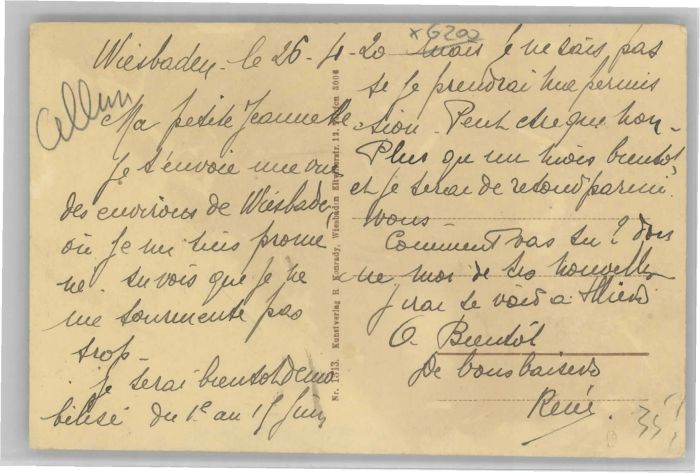 x6202
Wiesbaden - le 26-4-20
Ma petite Jeannette
Je t'envoie une vue
des environs de Wiesbaden
où je me suis prome
né. tu vois que je ne
me tourmente pas
trop -
je serai bientot demo
bilisé du 1e au 15 Juin
mais je ne sais pas
si je prendrai une permis
sion. Peut etre que non -
Plus qu'un mois bientot,
et je serai de retour parmi
vous -
Comment vas tu? don
ne moi de tes nouvelles
j'irai te voir à
A Bientôt
De bons baisers
René
35
Nr. 1913. Kunstverlag R Konrady, Wiesbaden 12. 3006